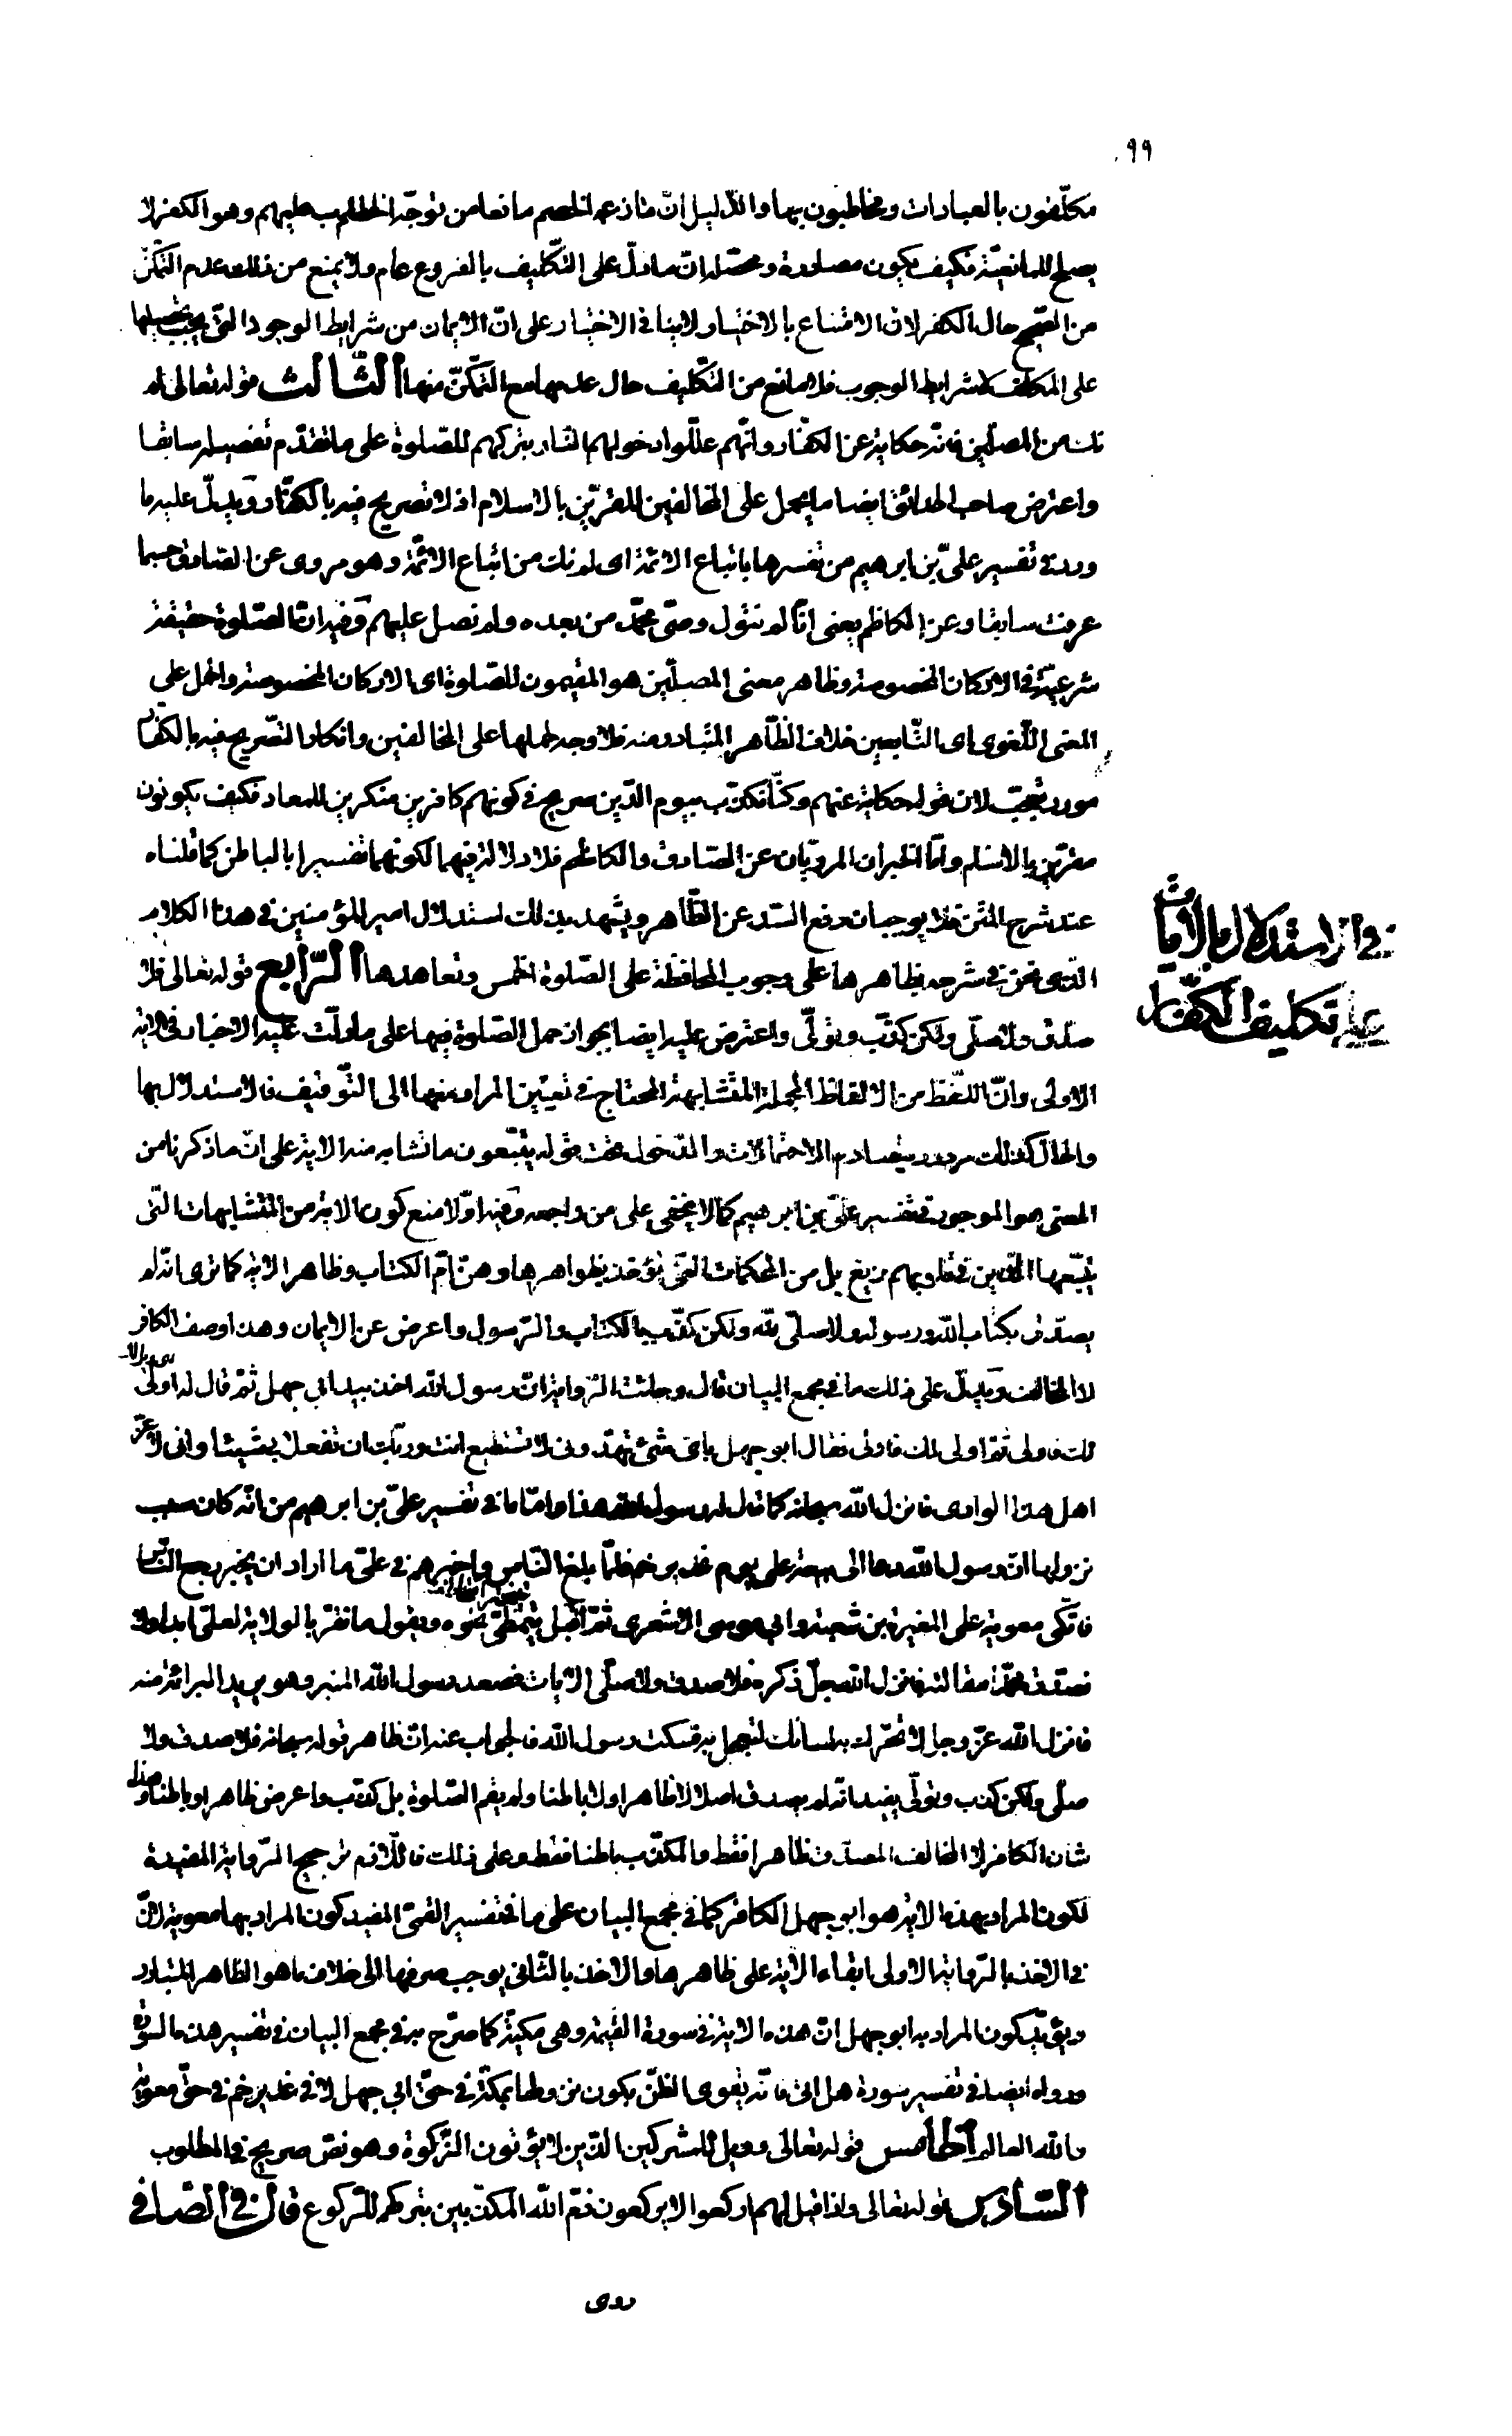 ٩٩
مكلّفون بالعبادات ومخاطبون بها والدّليل انّ ما زعمه الخصم مانعا من توجّه الخطاب عليهم وهو الكفر لا
يصلح للمانعيّة فكيف يكون مصادرة ومحصّله انّ ما دلّ على التّكليف بالفروع عام ولا يمنع من ذلك عدم التّمكّن
من الصّحيح حال الكفر لان الامتناع بالاختيار لا ينافي الاختيار على انّ الايمان من شرايط الوجود التى يجب تحصيلها
على المكلف لا شرايط الوجوب فلا مانع من التّكليف حال عدمها مع التمكّن منها الثّالث قوله تعالى لم
نك من المصلّين فانّه حكاية عن الكفّار وانّهم علّلوا دخولهم النّار بتركهم للصّلوة على ما تقدّم تفصيله سابقا
واعترض صاحب الحدائق ايضا بما يحمل على المخالفين المقرّين بالاسلام اذ لا تصريح فيه بالكفّار ويدلّ عليه ما
ورد فى تفسير علىّ بن ابرهيم من تفسيرها باتباع الائمة اى لم نك من اتباع الائمّة وهو مروى عن الصّادق حسبما
عرفت سابقا وعن الكاظم يعنى انّا لم نتولّ وصىّ محمّد من بعده ولم نصل عليهم وفيه انّ الصّلوة حقيقة
شرعيّة فى الاركان المخصوصة وظاهر معنى المصلّين هو المقيمون للصّلوة اى الاركان المخصوصة والحمل على
المعنى اللّغوى اى التّابعين خلاف الظّاهر المتبادر منه فلا وجه لحملها على المخالفين وانكار التّصريح فيه بالكفّار
مورد تعجّب لان قوله حكاية عنهم وكنّا نكذّب بيوم الدّين صريح فى كونهم كافرين منكرين للمعاد فكيف يكونون
مقرّين بالاسلام وامّا الخبران المرويّان عن الصّادق والكاظم فلا دلالة فيهما لكونهما تفسيرا بالباطن كما قلناه
عند شرح المتن فلا يوجبان رفع اليد عن الظّاهر ويشهد بذلك استدلال امير المؤمنين فى هذا الكلام
الّذى نحن فى شرحه بظاهرها على وجوب المحافظة على الصّلوة الخمس وتعاهدها الرّابع قوله تعالى فلا
صدّق ولا صلّى ولكن كذّب وتولّى واعترض عليه ايضا بجواز حمل الصّلوة فيها على ما دلّت عليه الاخبار فى الاية
الاولى وانّ اللّفظ من الالفاظ المجملة المتشابهة المحتاج فى تعيين المراد منها الى التّوقيف فالاستدلال بها
والحال كذلك مردود بتصادم الاحتمالات والدّخول تحت قوله يتّبعون ما تشابه منه الاية على انّ ما ذكرنا من
المعنى هو الموجود فى تفسير علىّ بن ابرهيم كما لا يخفى على من راجعه وفيه اوّلا منع كون الاية من المتشابهات الّتى
يتّبعها الّذين فى قلوبهم زيغ بل من المحكمات الّتى يؤخذ بظواهرها وهنّ امّ الكتاب وظاهر الاية كما ترى انّه لم
يصدّق بكتاب اللّه ورسوله ولا صلّى للّه ولكن كذّب بالكتاب والرّسول واعرض عن الايمان وهذا وصف الكافر
لا المخالف ويدلّ على ذلك ما فى مجمع البيان قال وجائت الرّواية انّ رسول اللّه اخذ بيد ابى جهل ثمّ قال له اولى
لك فاولى ثمّ اولى لك فاولى فقال ابو جهل باىّ شىء تهدّدنى لا تستطيع انت وربّك ان تفعلا بى شيئا وانى لاعزّ
اهل هذا الوادى فانزل اللّه سبحانه كما قال له رسول اللّه هذا وامّا ما فى تفسير علىّ بن ابرهيم من انّه كان سبب
نزولها انّ رسول اللّه دعا الى بيعة على يوم غدير خم فلمّا بلغ النّاس واخبرهم فى علىّ ما اراد ان يخبر رجع النّاس
فاتّكى معوية على المغيرة بن شعبة وابى موسى الاشعرى ثمّ اقبل يتمطّى نحوه ويقول ما نقرّ بالولاية لعلىّ ابدا ولا
نصدّق محمّدا مقالته فانزل اللّه جلّ ذكره فلا صدق ولا صلّى الايات فصعد رسول اللّه المنبر وهو يريد البرائة منه
فانزل اللّه عزّ وجل لا تحرّك به لسانك لتعجل به فسكت رسول اللّه فالجواب عنه انّ ظاهر قوله سبحانه فلا صدق ولا
صلّى ولكن كذب وتولّى يفيد انّه لم يصدق اصلا لا ظاهرا ولا باطنا ولم يقم الصّلوة بل كذّب واعرض ظاهرا وباطنا وهذا
شان الكافر لا المخالف المصدّق ظاهرا فقط والمكذّب باطنا فقط وعلى ذلك فاللّازم ترجيح الرّواية المفيدة
لكون المراد بهذه الاية هو ابو جهل الكافر كما فى مجمع البيان على ما فى تفسير القمّى المفيد كون المراد بها معوية لانّ
فى الاخذ بالرّواية الاولى ابقاء الاية على ظاهرها والاخذ بالثّانى يوجب صرفها الى خلاف ما هو الظّاهر المتبادر
ويؤيّد كون المراد به ابو جهل انّ هذه الاية فى سورة القيمة وهى مكيّة كما صرّح به فى مجمع البيان فى تفسير هذه السّورة
ورواه ايضا فى تفسير سورة هل اتى فانّه يقوى الظّنّ بكون نزولها بمكّة فى حقّ ابى جهل لا فى غدير خم فى حقّ معوية
واللّه العالم الخامس قوله تعالى وويل للمشركين الّذين لا يؤتون الزّكوة وهو نصّ صريح فى المطلوب
السّادس قوله تعالى واذا قيل لهم اركعوا لا يركعون ذمّ اللّه المكذّبين بتركهم للرّكوع قال فى الصّافى
فى الاستدلال بالايات
على تكليف الكفّار
روى